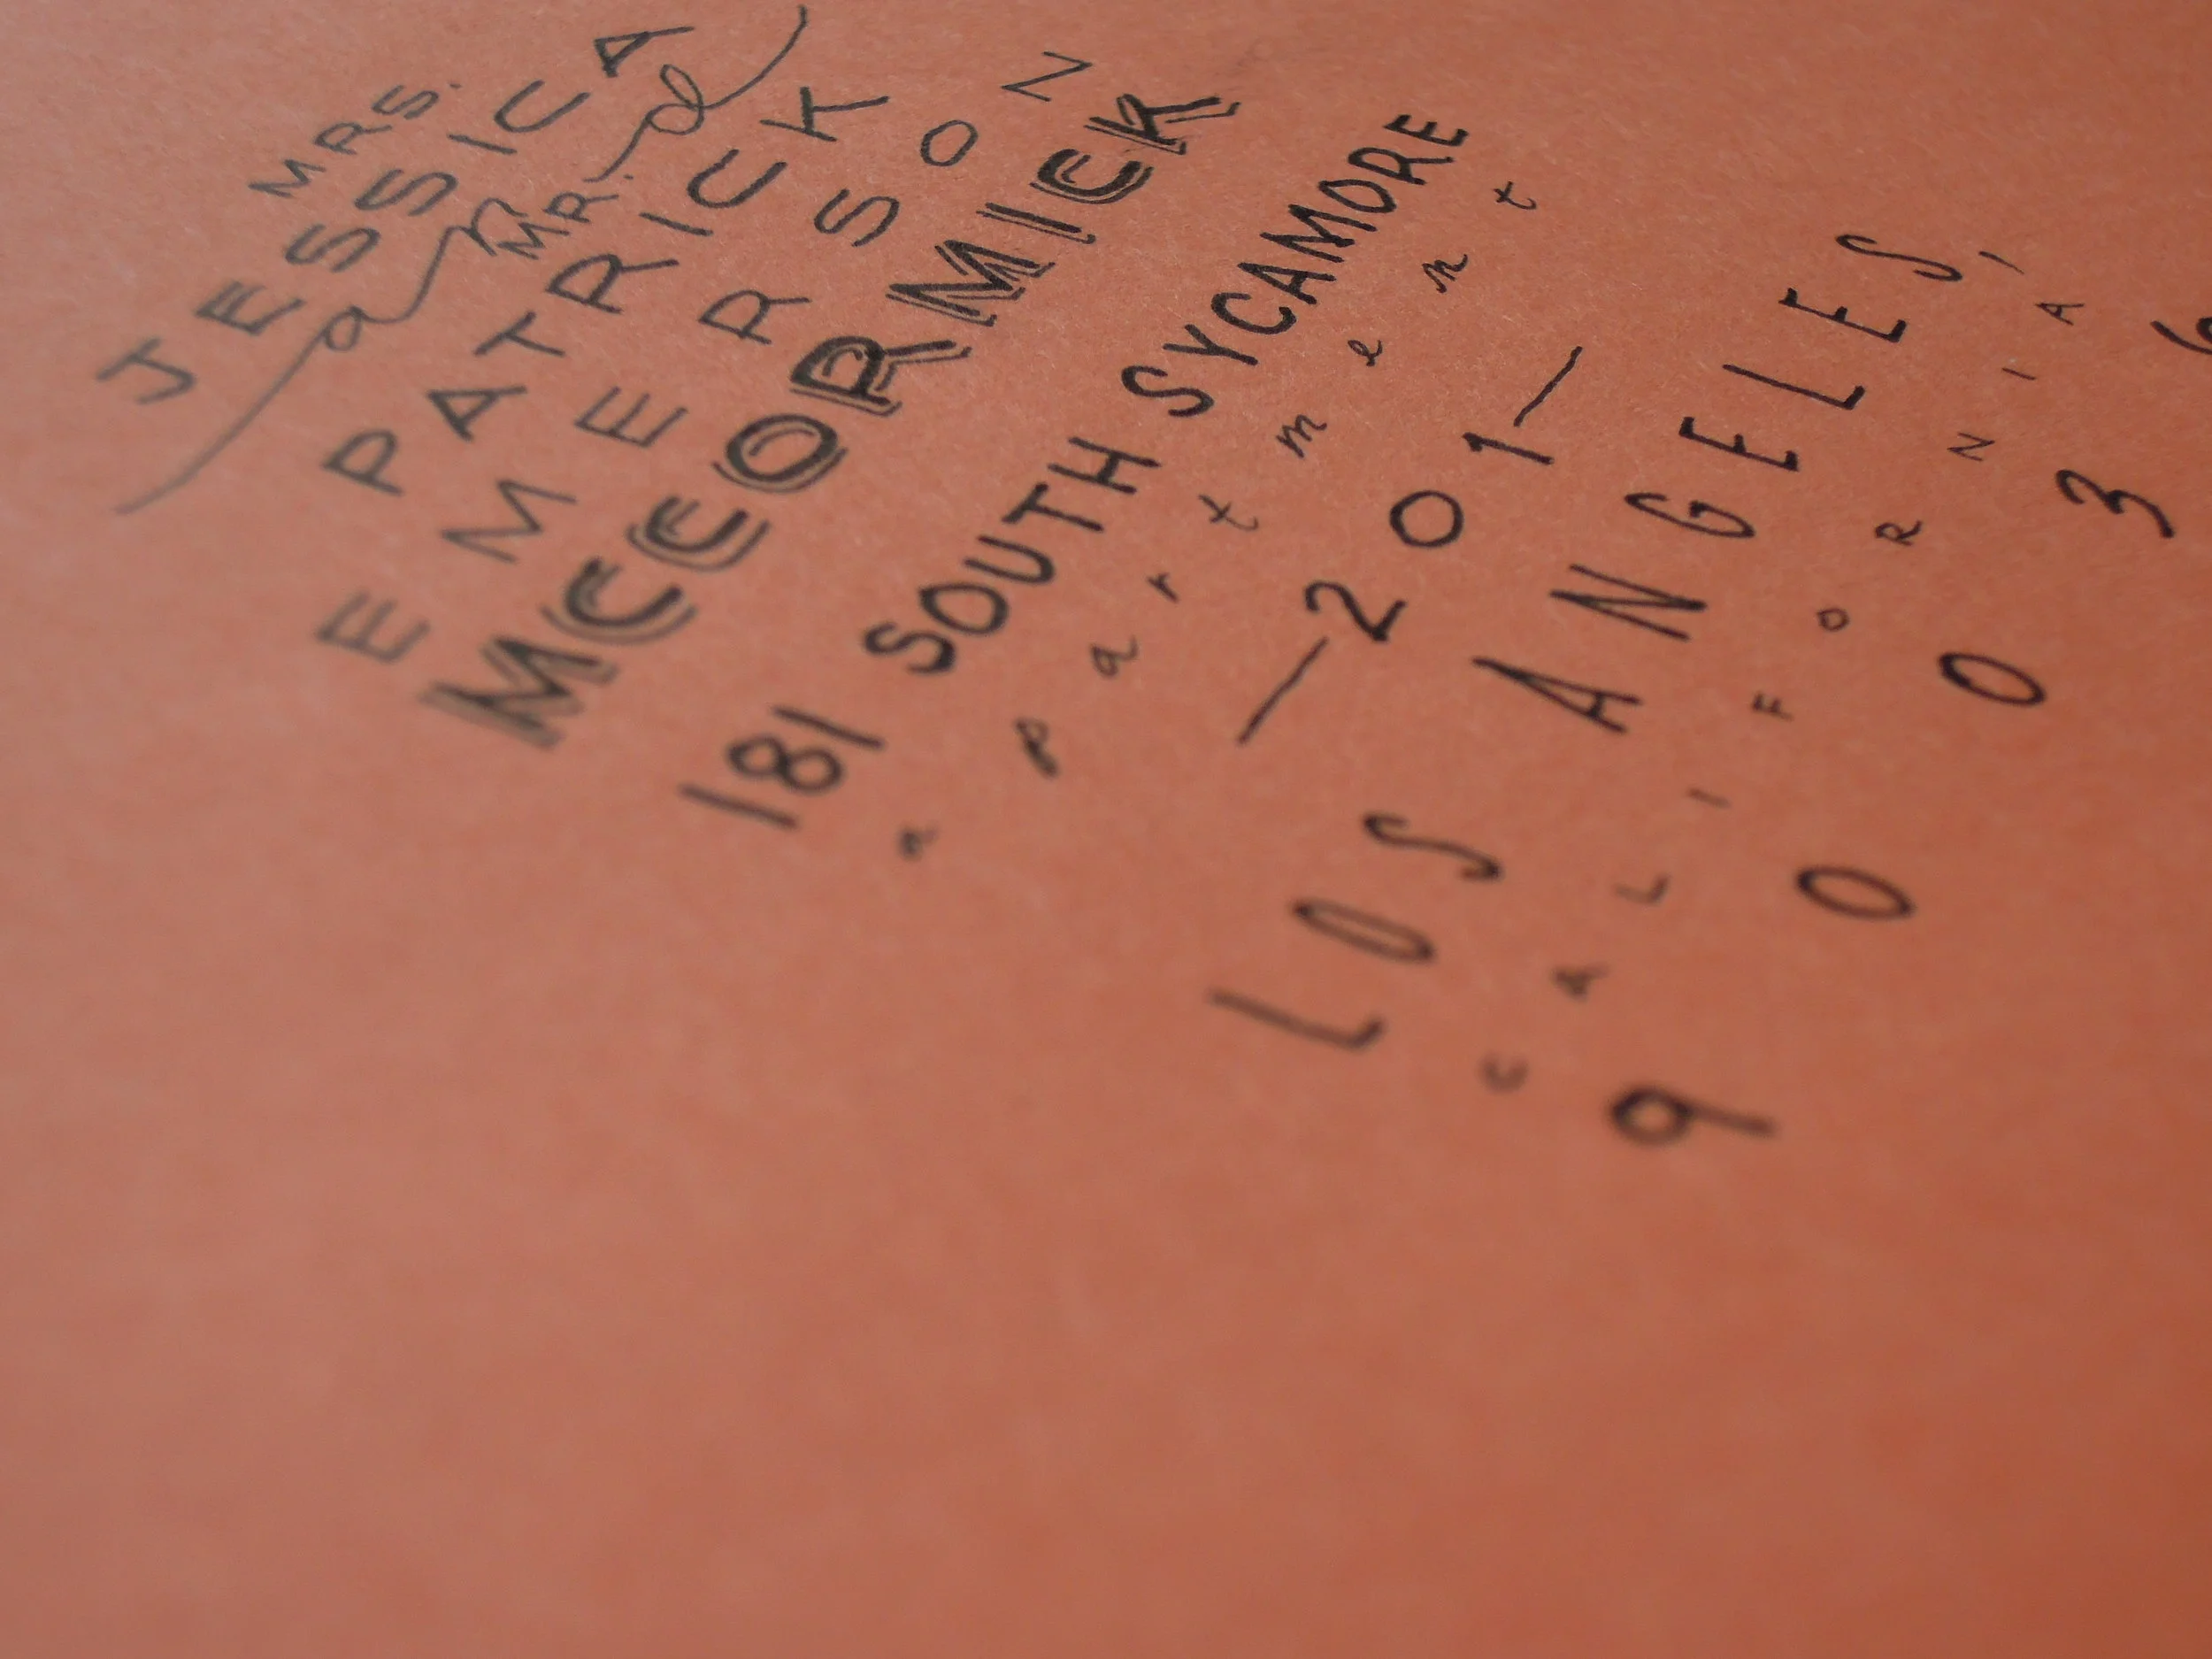 MRS.
JESSICA
and
MR.
PATRICK
EMERSON
MCCORMICK
181 SOUTH SYCAMORE
apartment
—201—
LOS ANGELES,
CALIFORNIA
90036